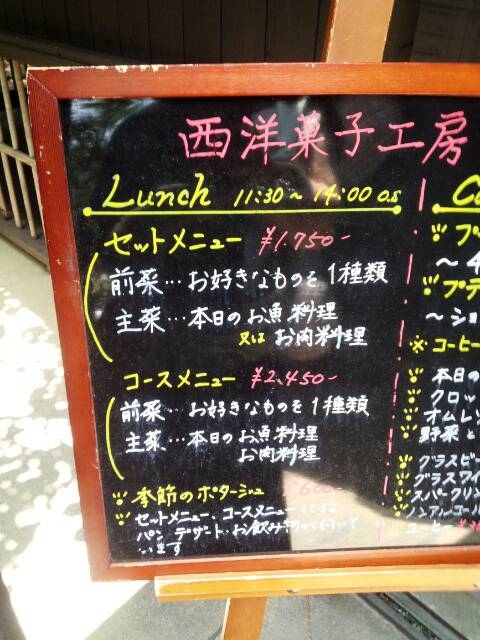 西洋菓子工房
Lunch 11:30〜14:00 O.S
セットメニュー ¥1.750-
前菜…お好きなものを1種類
主菜…本日のお魚料理
又は お肉料理
コースメニュー ¥2.450-
前菜…お好きなものを1種類
主菜…本日のお魚料理
お肉料理
季節のポタージュ ¥600-
セットメニュー、コースメニューには
パン デザート・お飲み物が付いて
います
Ca
フッ
〜4
プテ
〜ショ
※コーヒー
本日の
クロッ
オムレツ
野菜と
グラスビー
グラスワイ
スパークリン
ノンアルコール
コーヒー